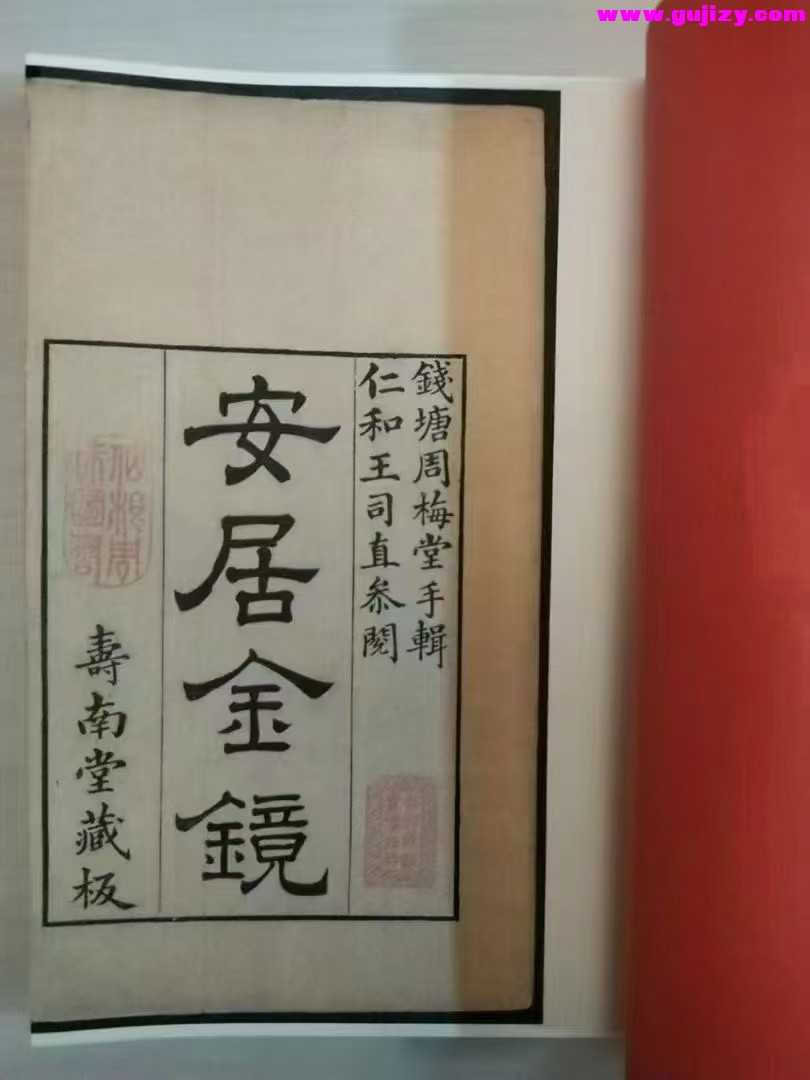 www.gujizy.com
錢塘周梅堂手輯
仁和王司直叅閱
安居金鏡
壽南堂藏板